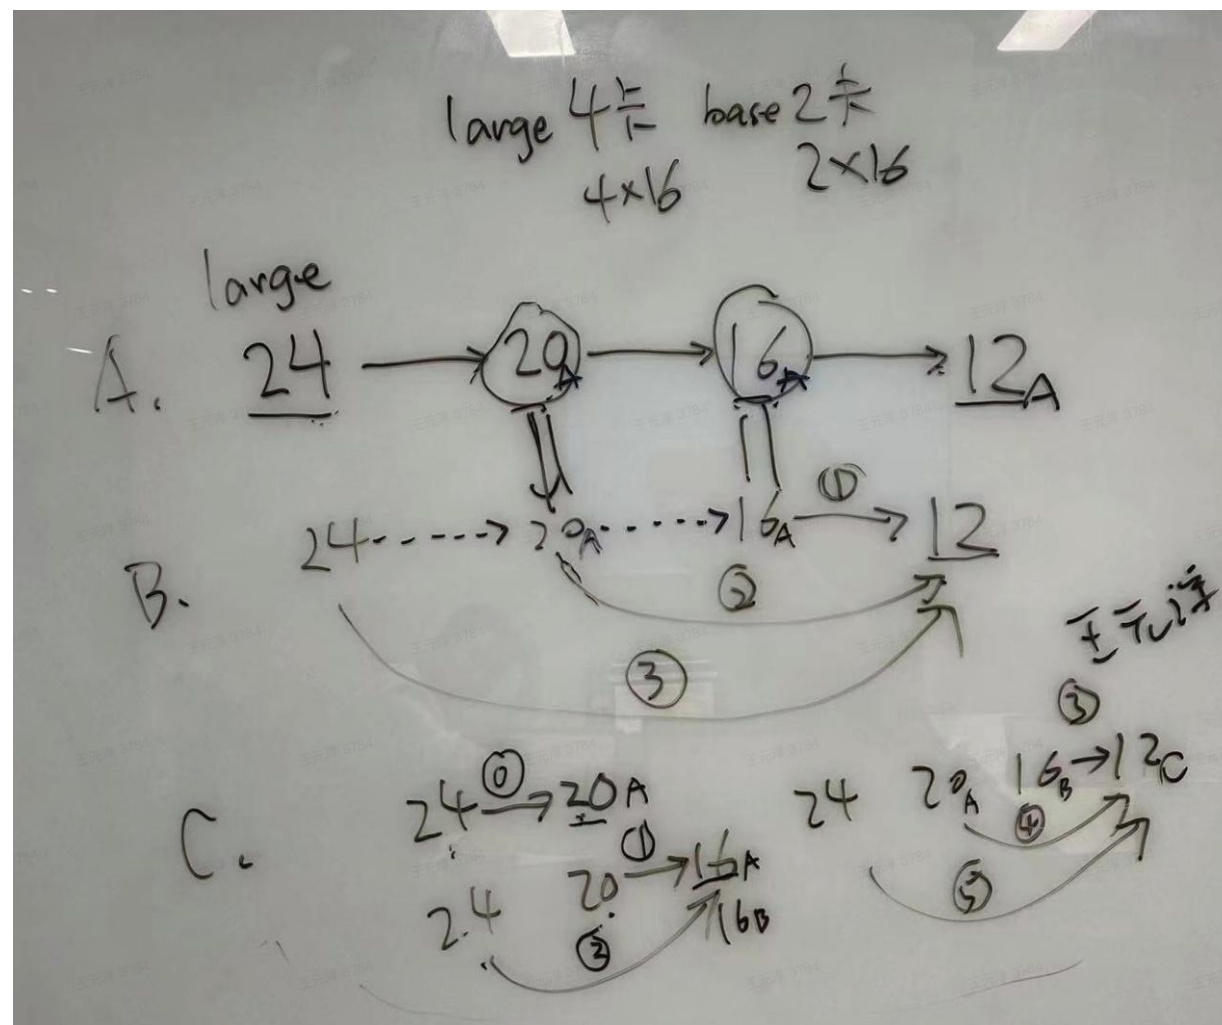 large 4卡 base 2卡
4×16 2×16
large
A. 24 → 20A → 16A → 12A
①
B. 24 ----> 20A ----> 16A → 12
②
③
王元洋
③
C. 24 ⓪→ 20A 24 20A 16B → 12C
① ④
20 → 16A
24 ② 16B ⑤